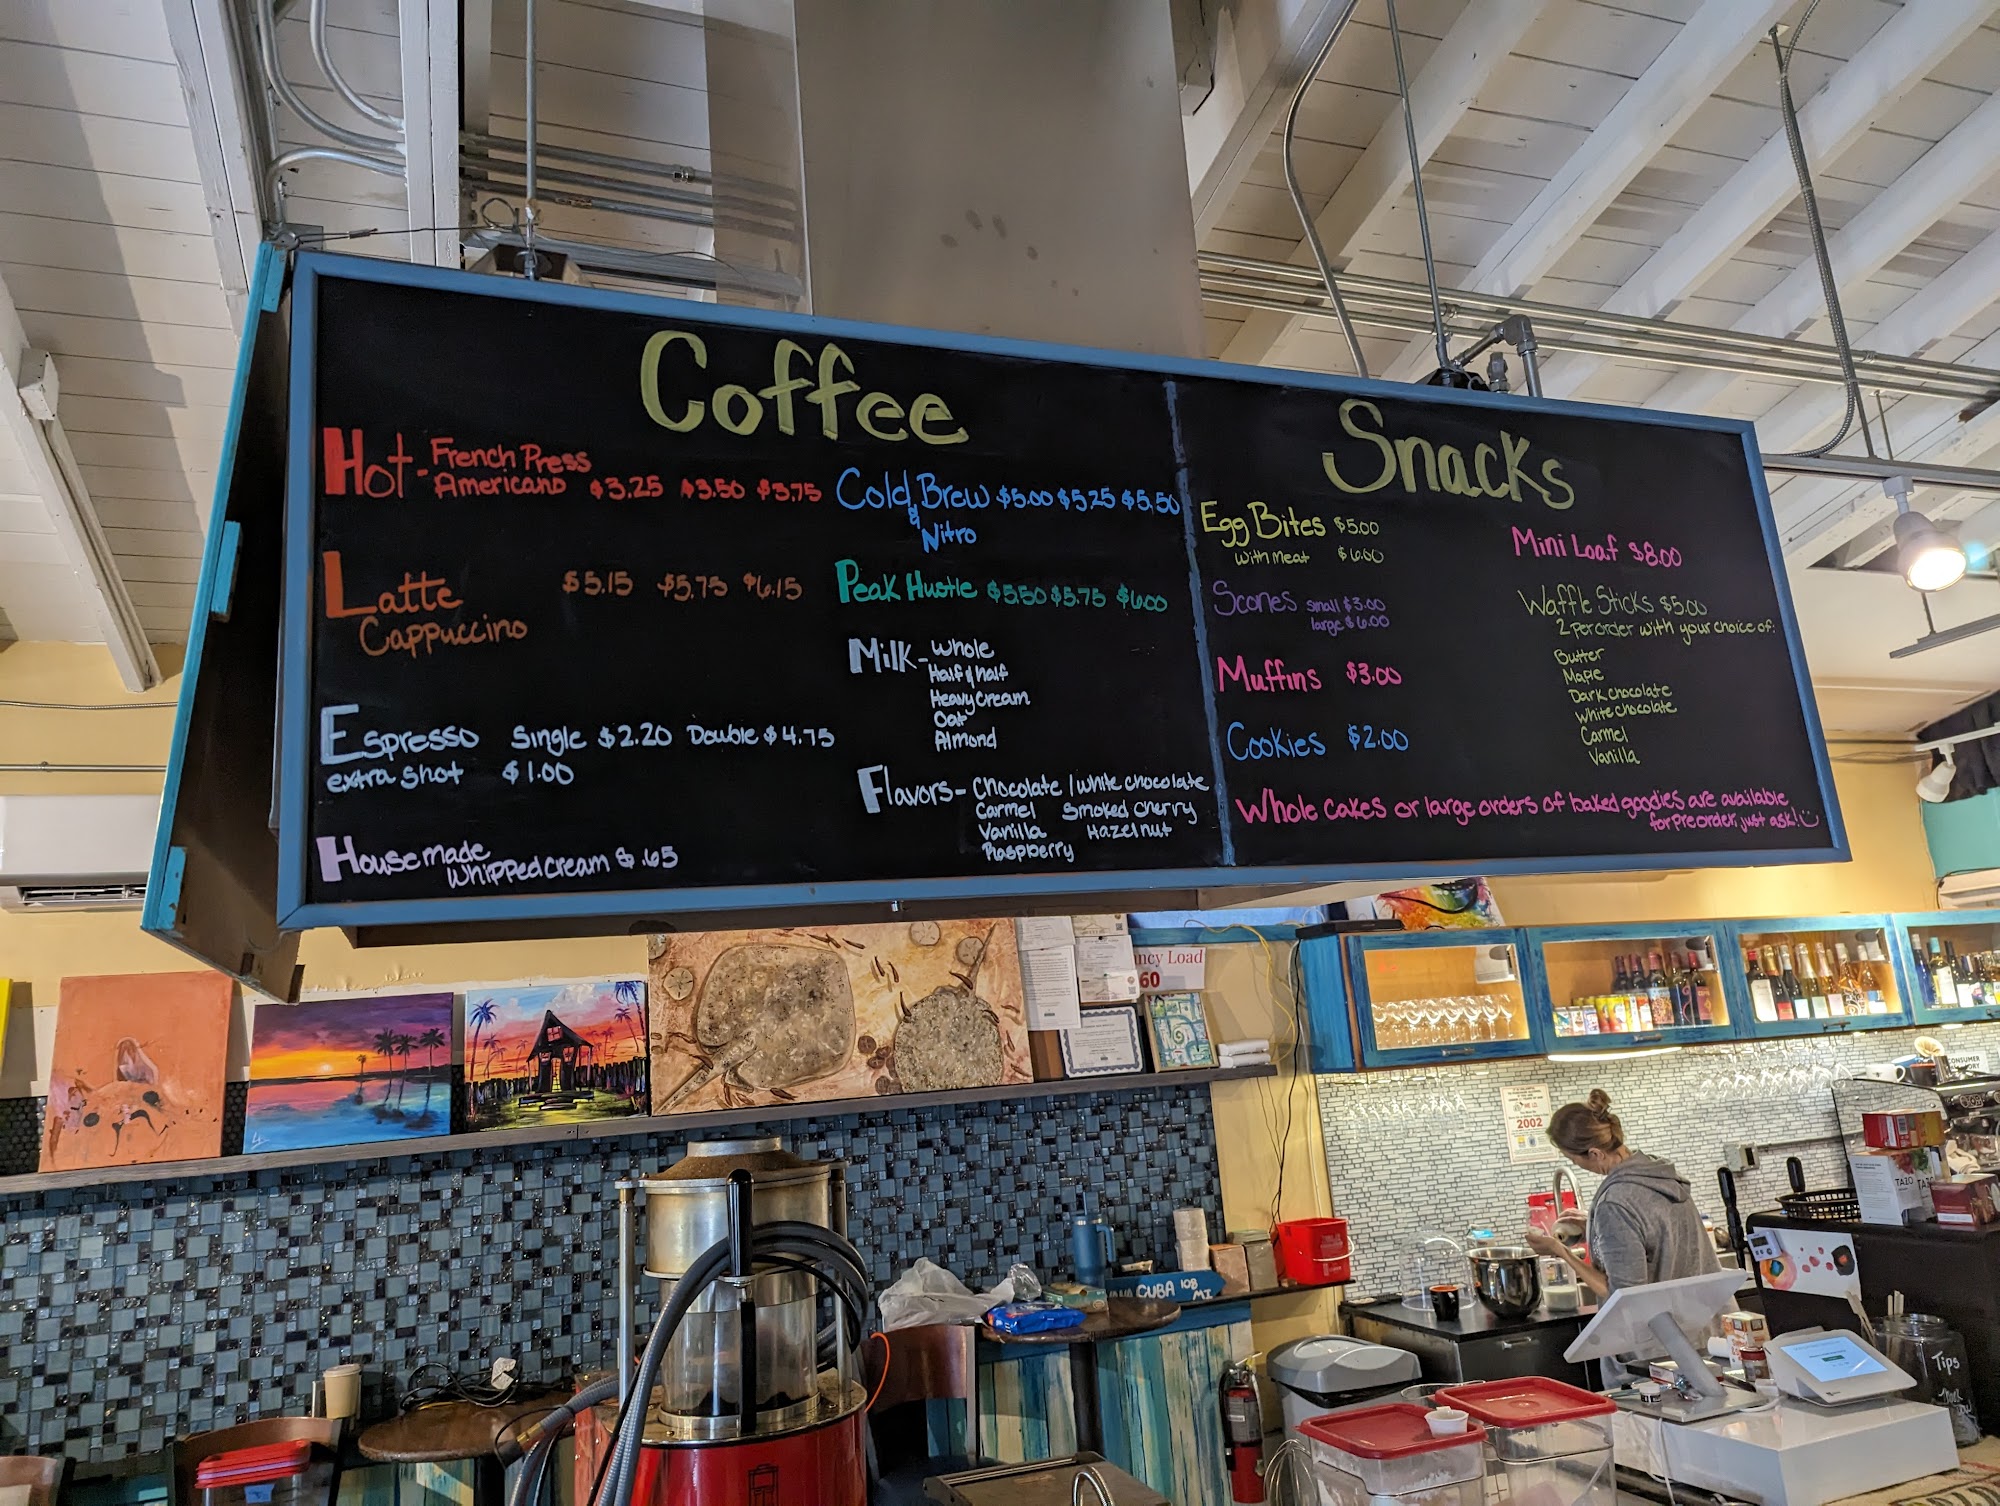 Coffee
Hot - French Press
Americano $3.25 $3.50 $3.75
Latte $5.15 $5.75 $6.15
Cappuccino
Espresso Single $2.20 Double $4.75
extra shot $1.00
House made
Whipped cream $.65
Cold Brew $5.00 $5.25 $5.50
&
Nitro
Peak Hustle $5.50 $5.75 $6.00
Milk - whole
Half & half
Heavy cream
Oat
Almond
Flavors - Chocolate / white chocolate
Carmel Smoked cherry
Vanilla Hazelnut
Raspberry
Snacks
Egg Bites $5.00
with meat $6.00
Scones small $3.00
large $6.00
Muffins $3.00
Cookies $2.00
Mini Loaf $8.00
Waffle Sticks $5.00
2 per order with your choice of:
Butter
Maple
Dark chocolate
White chocolate
Carmel
Vanilla
Whole cakes or large orders of baked goodies are available
for preorder, just ask!
ncy Load
60
2002
CONSUMER
TAZO
TAZO
CUBA 108
MI
Tips